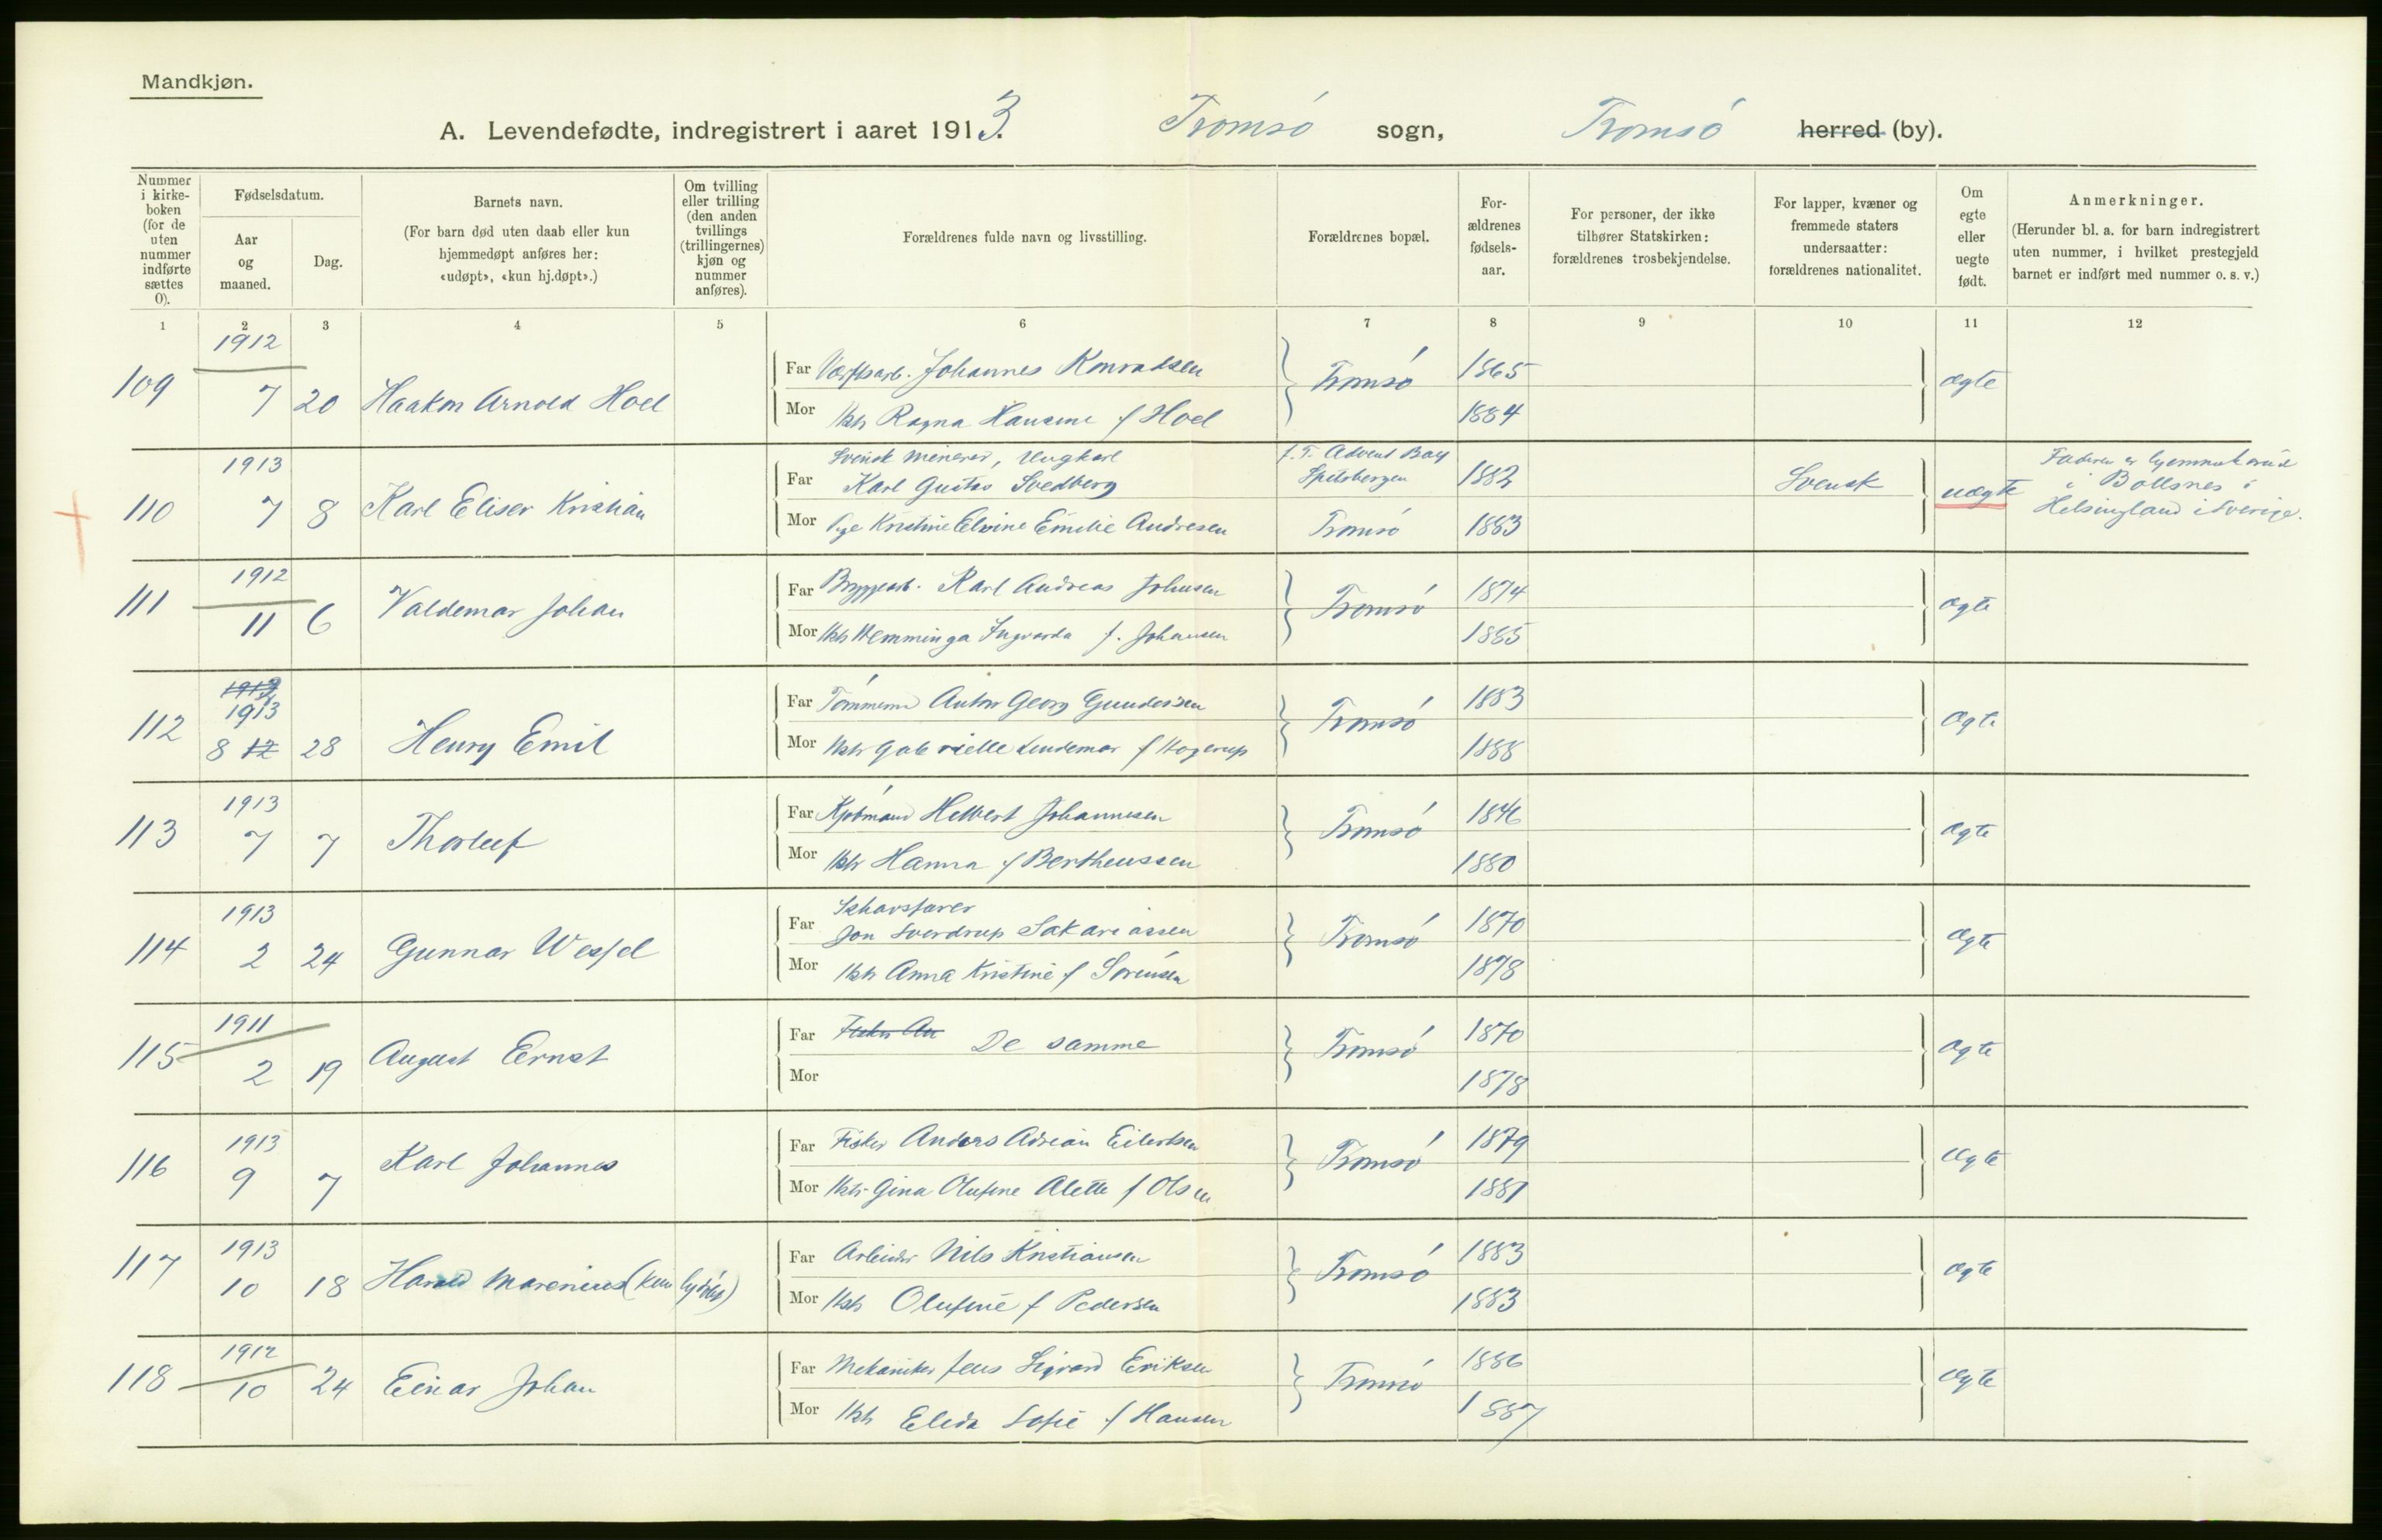 Mandkjøn.
A. Levendefødte, indregistrert i aaret 1913. Tromsó sogn, Tromsó herred (by).
Nummer i kirkeboken (for de uten nummer indførte sættes 0).
Fødselsdatum.
Aar og maaned.
Dag.
Barnets navn.
(For barn død uten daab eller kun hjemmedøpt anføres her: «udøpt», «kun hj.døpt».)
Om tvilling eller trilling (den anden tvillings (trillingernes) kjøn og nummer anføres).
Forældrenes fulde navn og livsstilling.
Forældrenes bopæl.
Forældrenes fødselsaar.
For personer, der ikke tilhører Statskirken: forældrenes trosbekjendelse.
For lapper, kvæner og fremmede staters undersaatter: forældrenes nationalitet.
Om egte eller uegte født.
Anmerkninger.
(Herunder bl. a. for barn indregistrert uten nummer, i hvilket prestegjeld barnet er indført med nummer o. s. v.)
1 2 3 4 5 6 7 8 9 10 11 12
1912
109 7 20 Haakon Arnold Hoel
Far Værftsarb. Johannes Konradsen Tromsó 1865 ægte
Mor Hstr Ragna Hansine f Hoel 1884
1913
110 7 8 Karl Eliser Kristian
Svensk minerer, Ungkarl
Far Karl Gustav Svedberg
f. T. Advent Bay
Spitsbergen 1882 Svensk uægte
Mor Pge Kristine Elvine Emilie Andresen Tromsó 1883
Faderen er hjemmehørende
i Bollsnes i
Helsingland i Sverige.
1912
111 11 6 Valdemar Johan
Far Bryggearb. Karl Andreas Johnsen Tromsó 1874 ægte
Mor Hstr Hemminga Ingvarda f. Johansen 1885
1912
1913
112 8 12 28 Henry Emil
Far Tømmerm Anton Georg Gundersen Tromsó 1883 Ægte
Mor Hstr Gabrielle Lindemar f Hagerup 1888
1913
113 7 7 Thorleif
Far Kjøbmand Helbert Johannesen Tromsó 1846 ægte
Mor Hstr Hanna f Bertheussen 1880
1913
114 2 24 Gunnar Wessel
Ishavsfarer
Far Jon Sverdrup Sakariassen Tromsó 1870 ægte
Mor Hstr Anna Kristine f Sørensen 1878
1911
115 2 19 August Ernst
Far Fisker An De samme Tromsó 1870 ægte
Mor 1878
1913
116 9 7 Karl Johannes
Far Fisker Anders Adrian Eilertsen Tromsó 1879 ægte
Mor Hstr Gina Olufine Alette f Olsen 1881
1913
117 10 18 Harald Marenius (kun hjdøpt)
Far Arbeider Nils Kristiansen Tromsó 1883 ægte
Mor Hstr Olufine f Pedersen 1883
1912
118 10 24 Einar Johan
Far Mekaniker Jens Sigvard Eriksen Tromsó 1886 ægte
Mor Hstr Elida Sofie f Hansen 1887